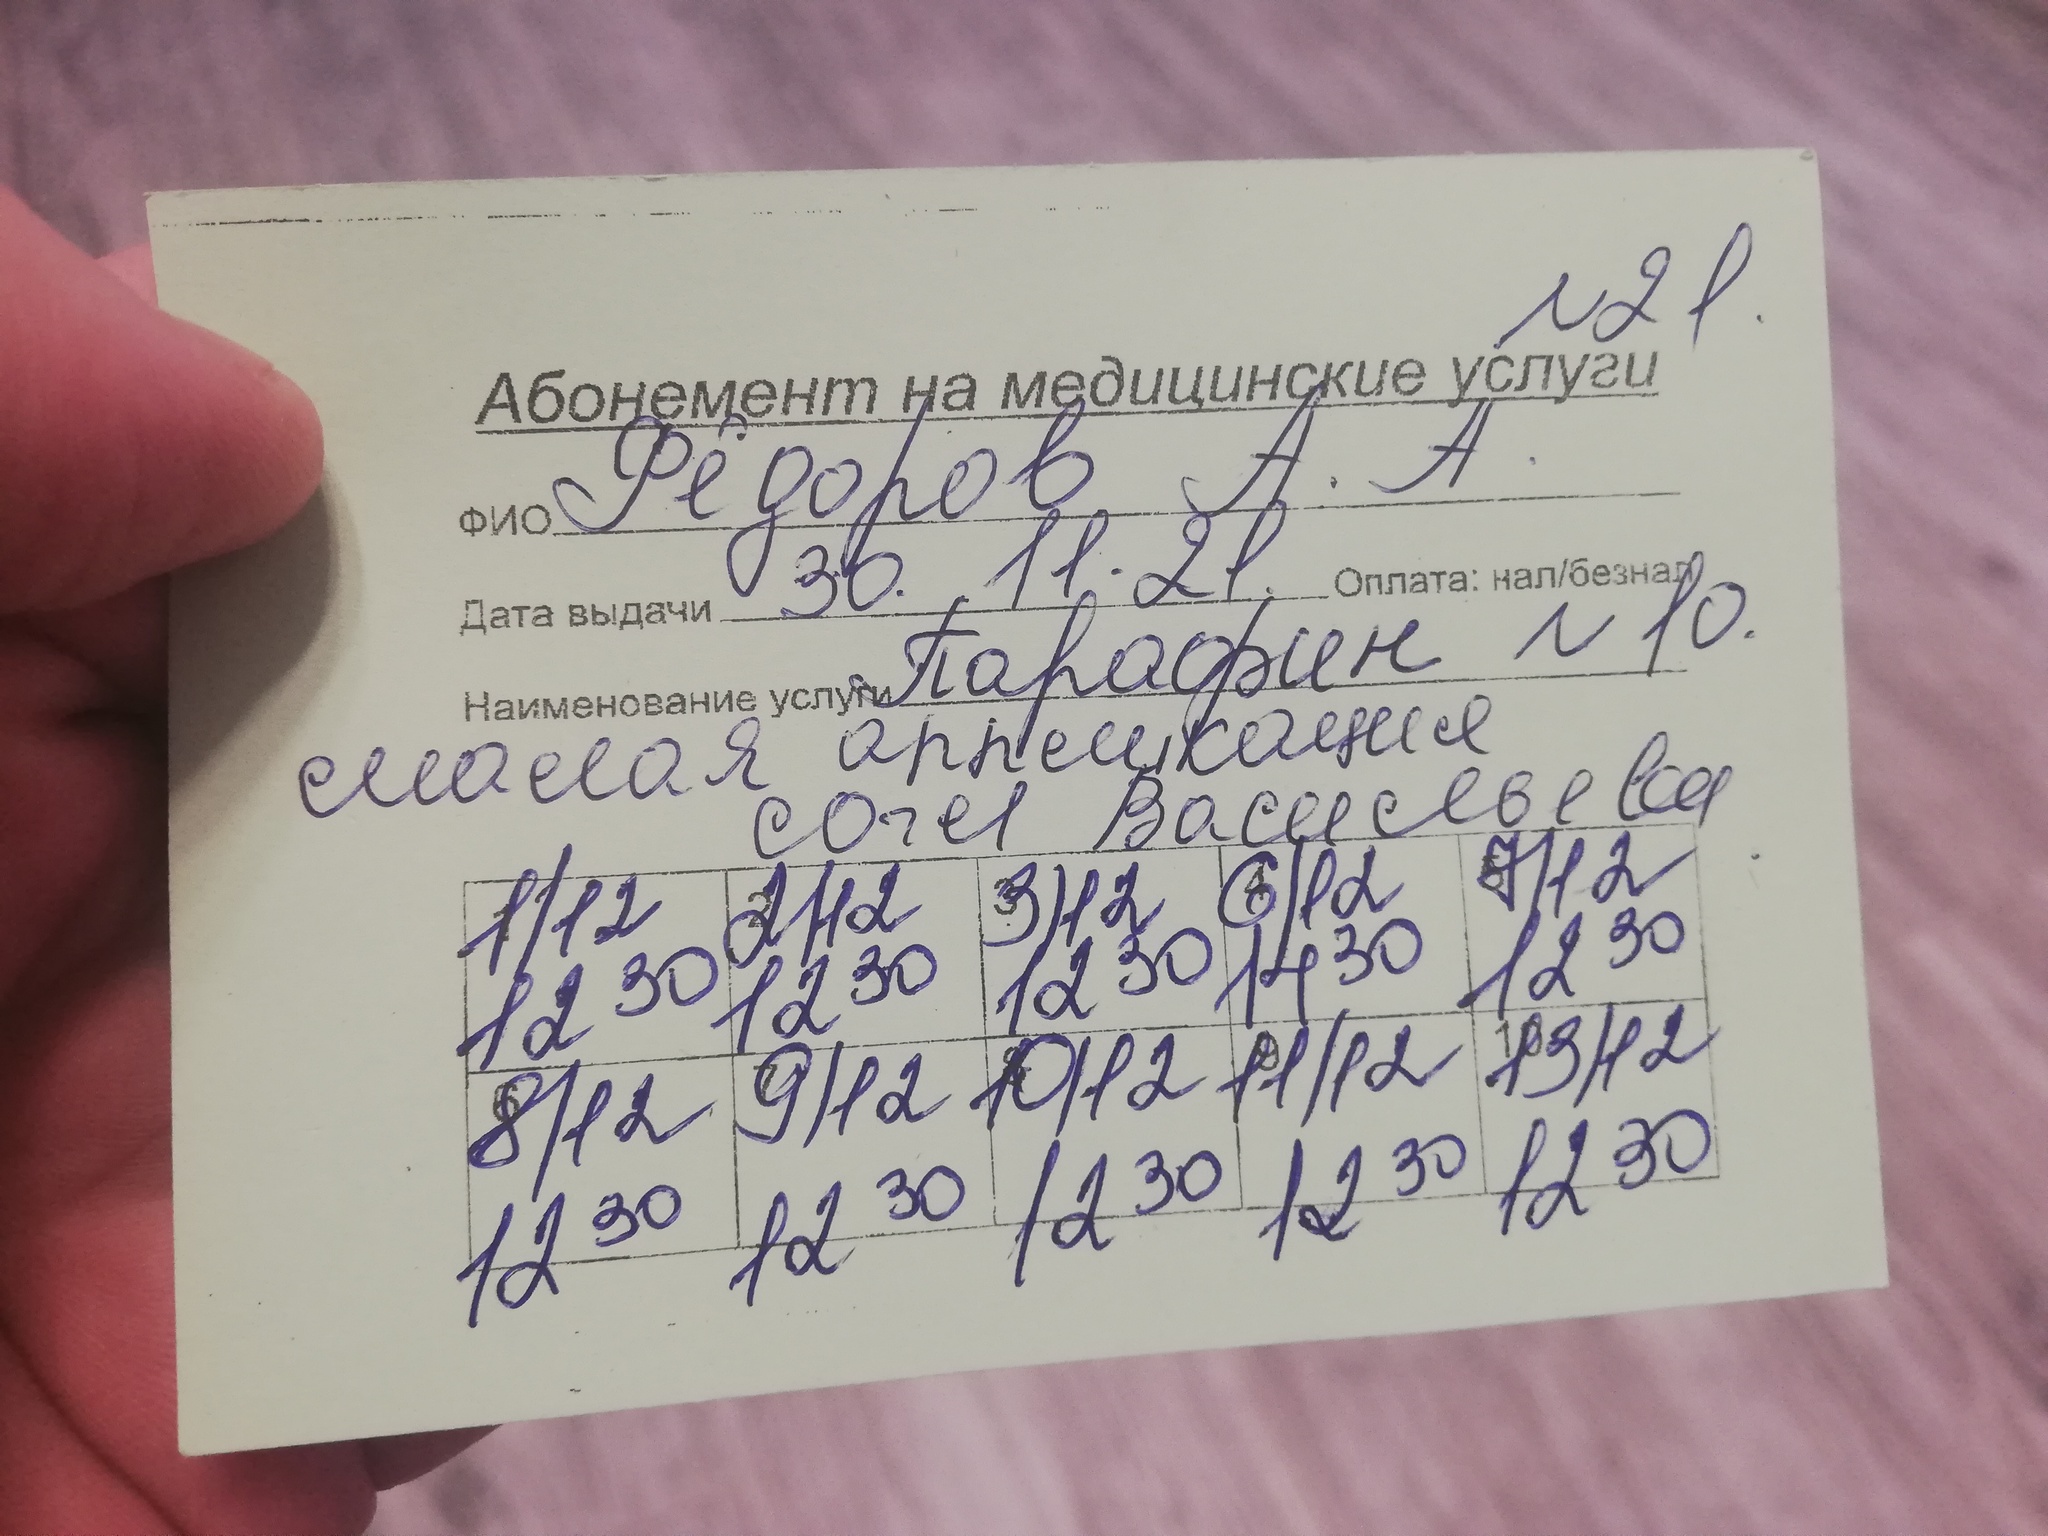 № 21.
Абонемент на медицинские услуги
ФИО Фёдоров А. А.
Дата выдачи 30. 11. 21. Оплата: нал/безнал
Наименование услуги Парафин № 10.
малая аппликация
Васильевна
1/12 2/12 3/12 6/12 7/12
12 30 12 30 12 30 14 30 12 30
8/12 9/12 10/12 11/12 13/12
12 30 12 30 12 30 12 30 12 30